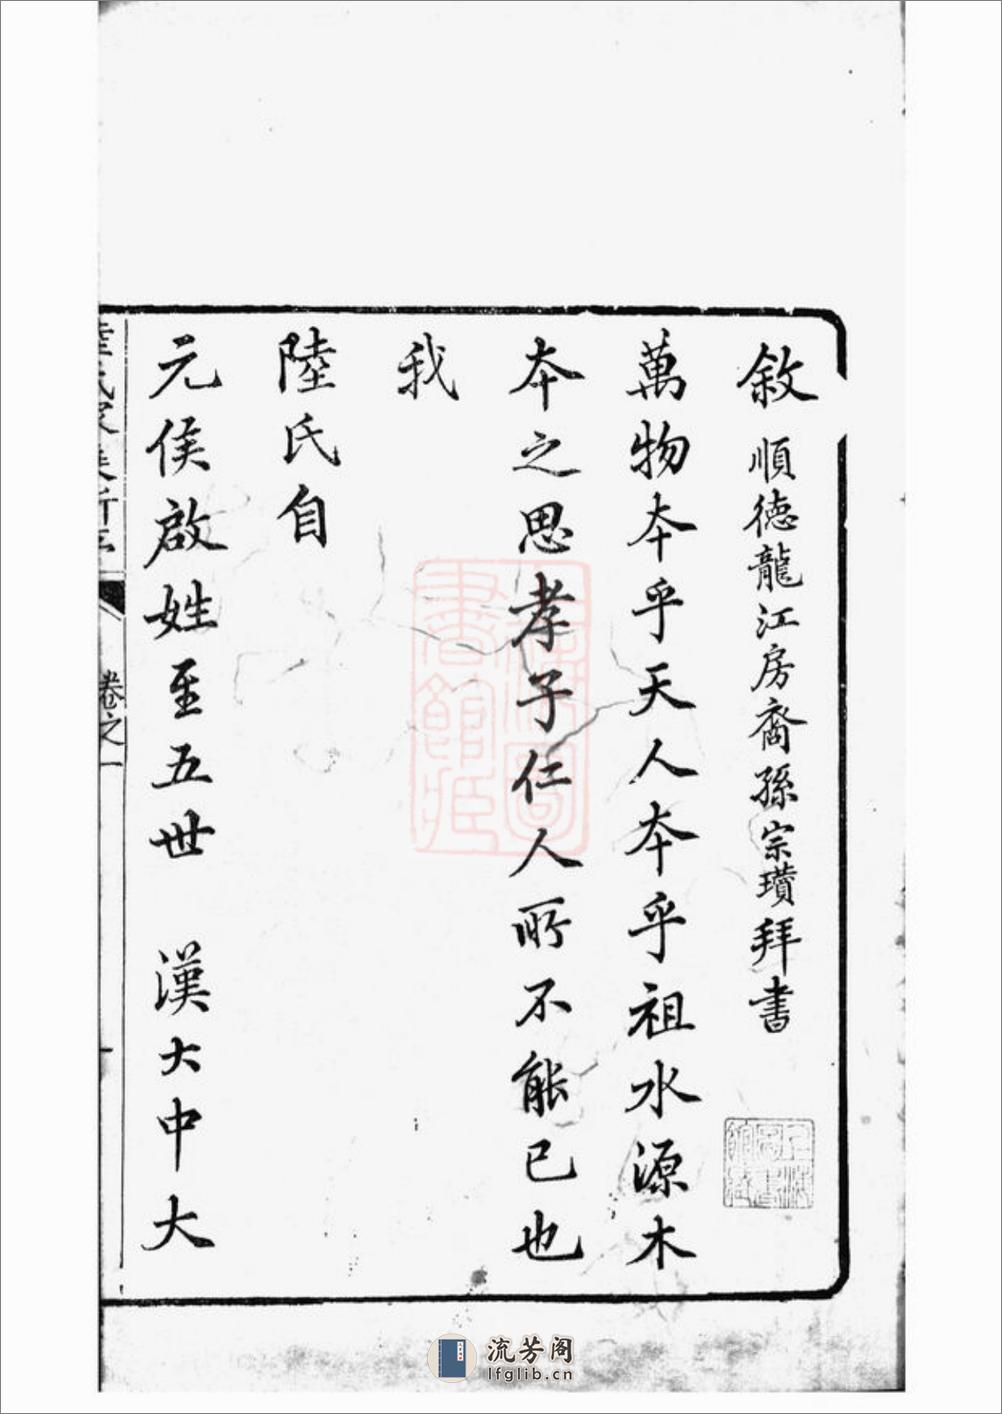 敘 順德龍江房裔孫宗瓚拜書
萬物本乎天人本乎祖水源木
本之思孝子仁人所不能已也
我
陸氏自
元侯啟姓至五世 漢大中大
卷之一
流芳阁
lfglib.cn